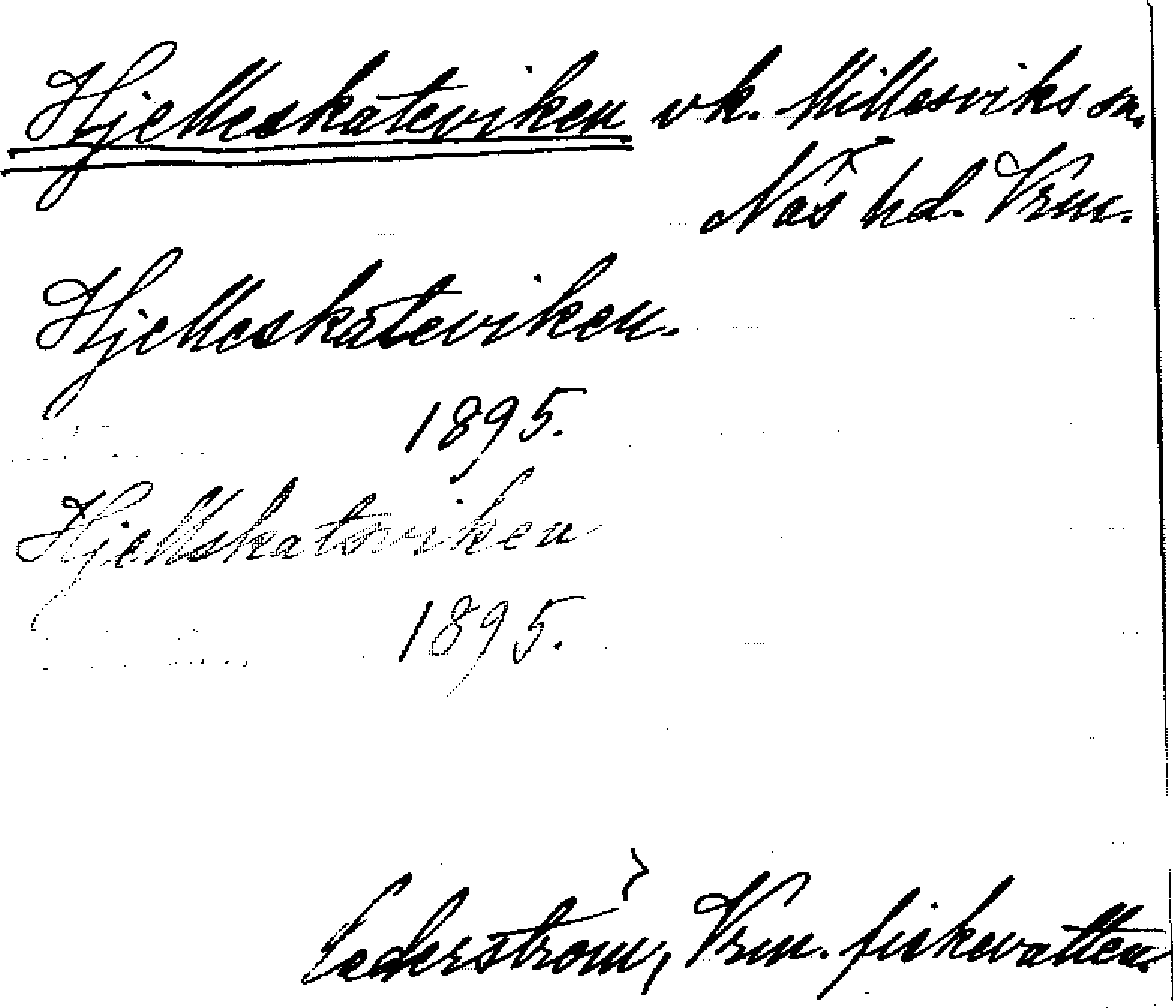 Hjelleskateviken vk. Millesviks sn.
Näs hd. Vrm.
Hjelleskateviken.
1895.
Hjellskateviken
1895.
Cederström, Vrm. fiskevatten.